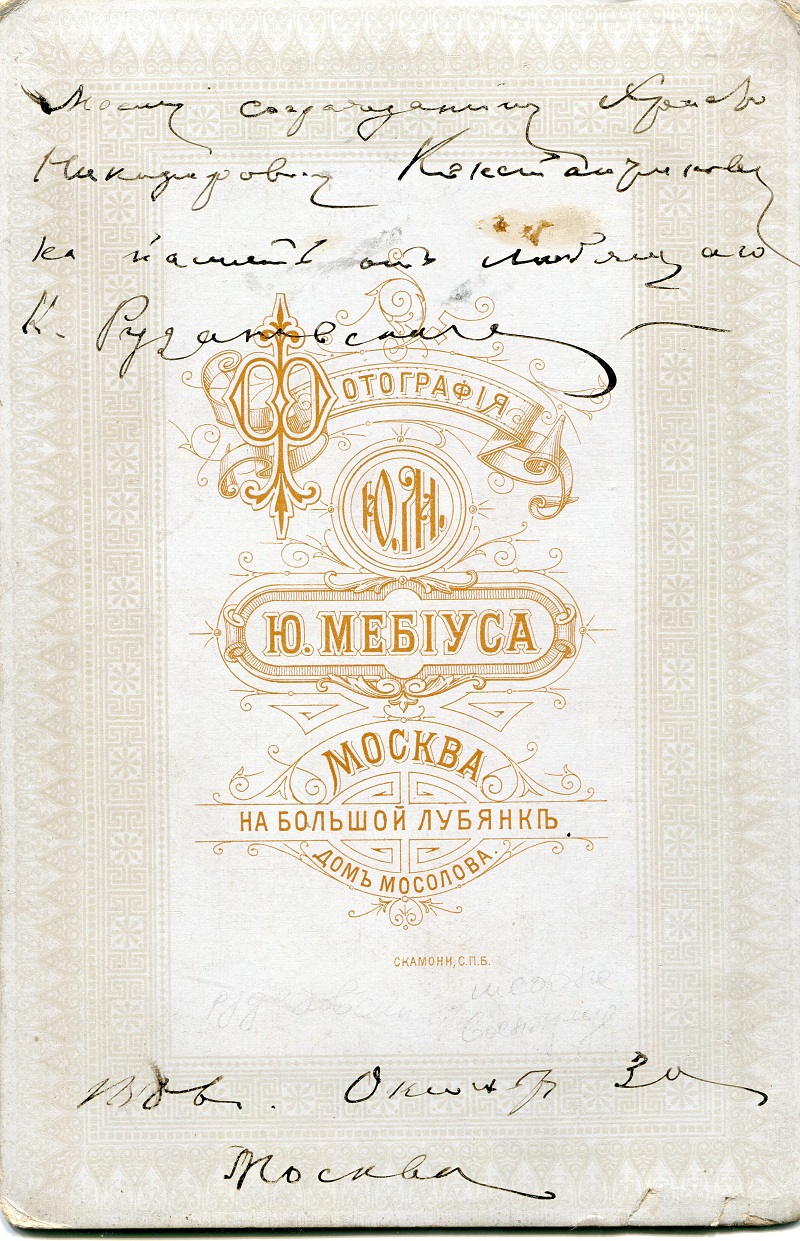 Моему согражданину
Никифоровичу Константинову
на память отъ любящаго
К. Рудановскаго
ФОТОГРАФІЯ
Ю. М.
Ю. МЕБІУСА
МОСКВА
НА БОЛЬШОЙ ЛУБЯНКѢ.
ДОМЪ МОСОЛОВА.
СКАМОНИ, С.П.Б.
30
Москва